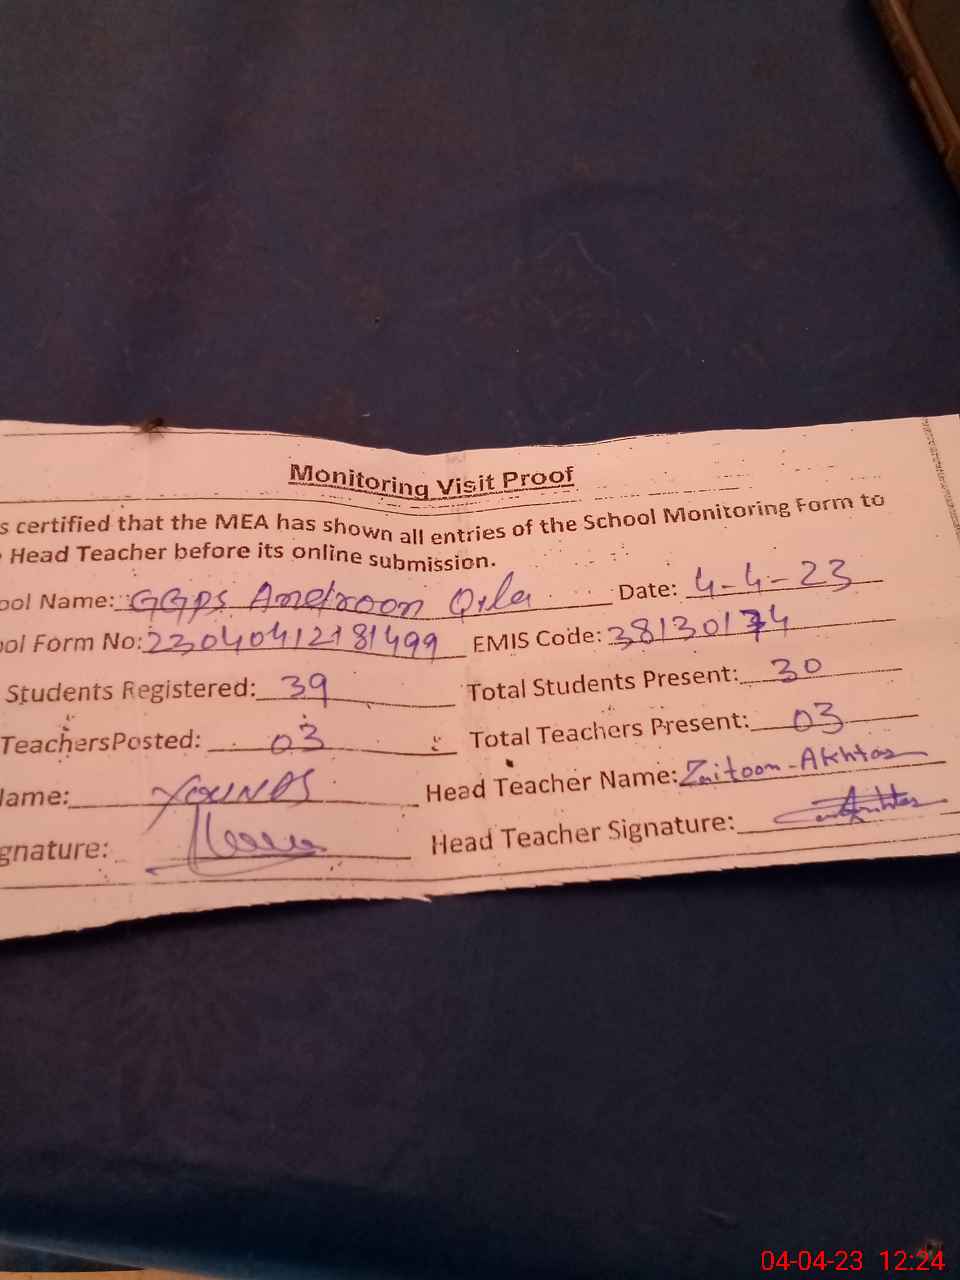 Monitoring Visit Proof
s certified that the MEA has shown all entries of the School Monitoring Form to
Head Teacher before its online submission.
ool Name: GGPS Androon Qila Date: 4-4-23
ool Form No: 23040412181499 EMIS Code: 38130174
Students Registered: 39 Total Students Present: 30
TeachersPosted: 03 Total Teachers Present: 03
lame: YOUNAS Head Teacher Name: Zaitoon-Akhtar
gnature: Head Teacher Signature:
04-04-23 12:24